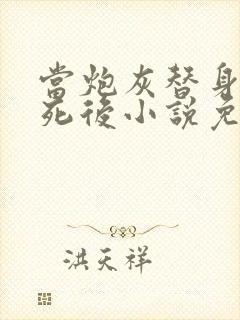 當炮灰替身
死後小說免
洪天祥